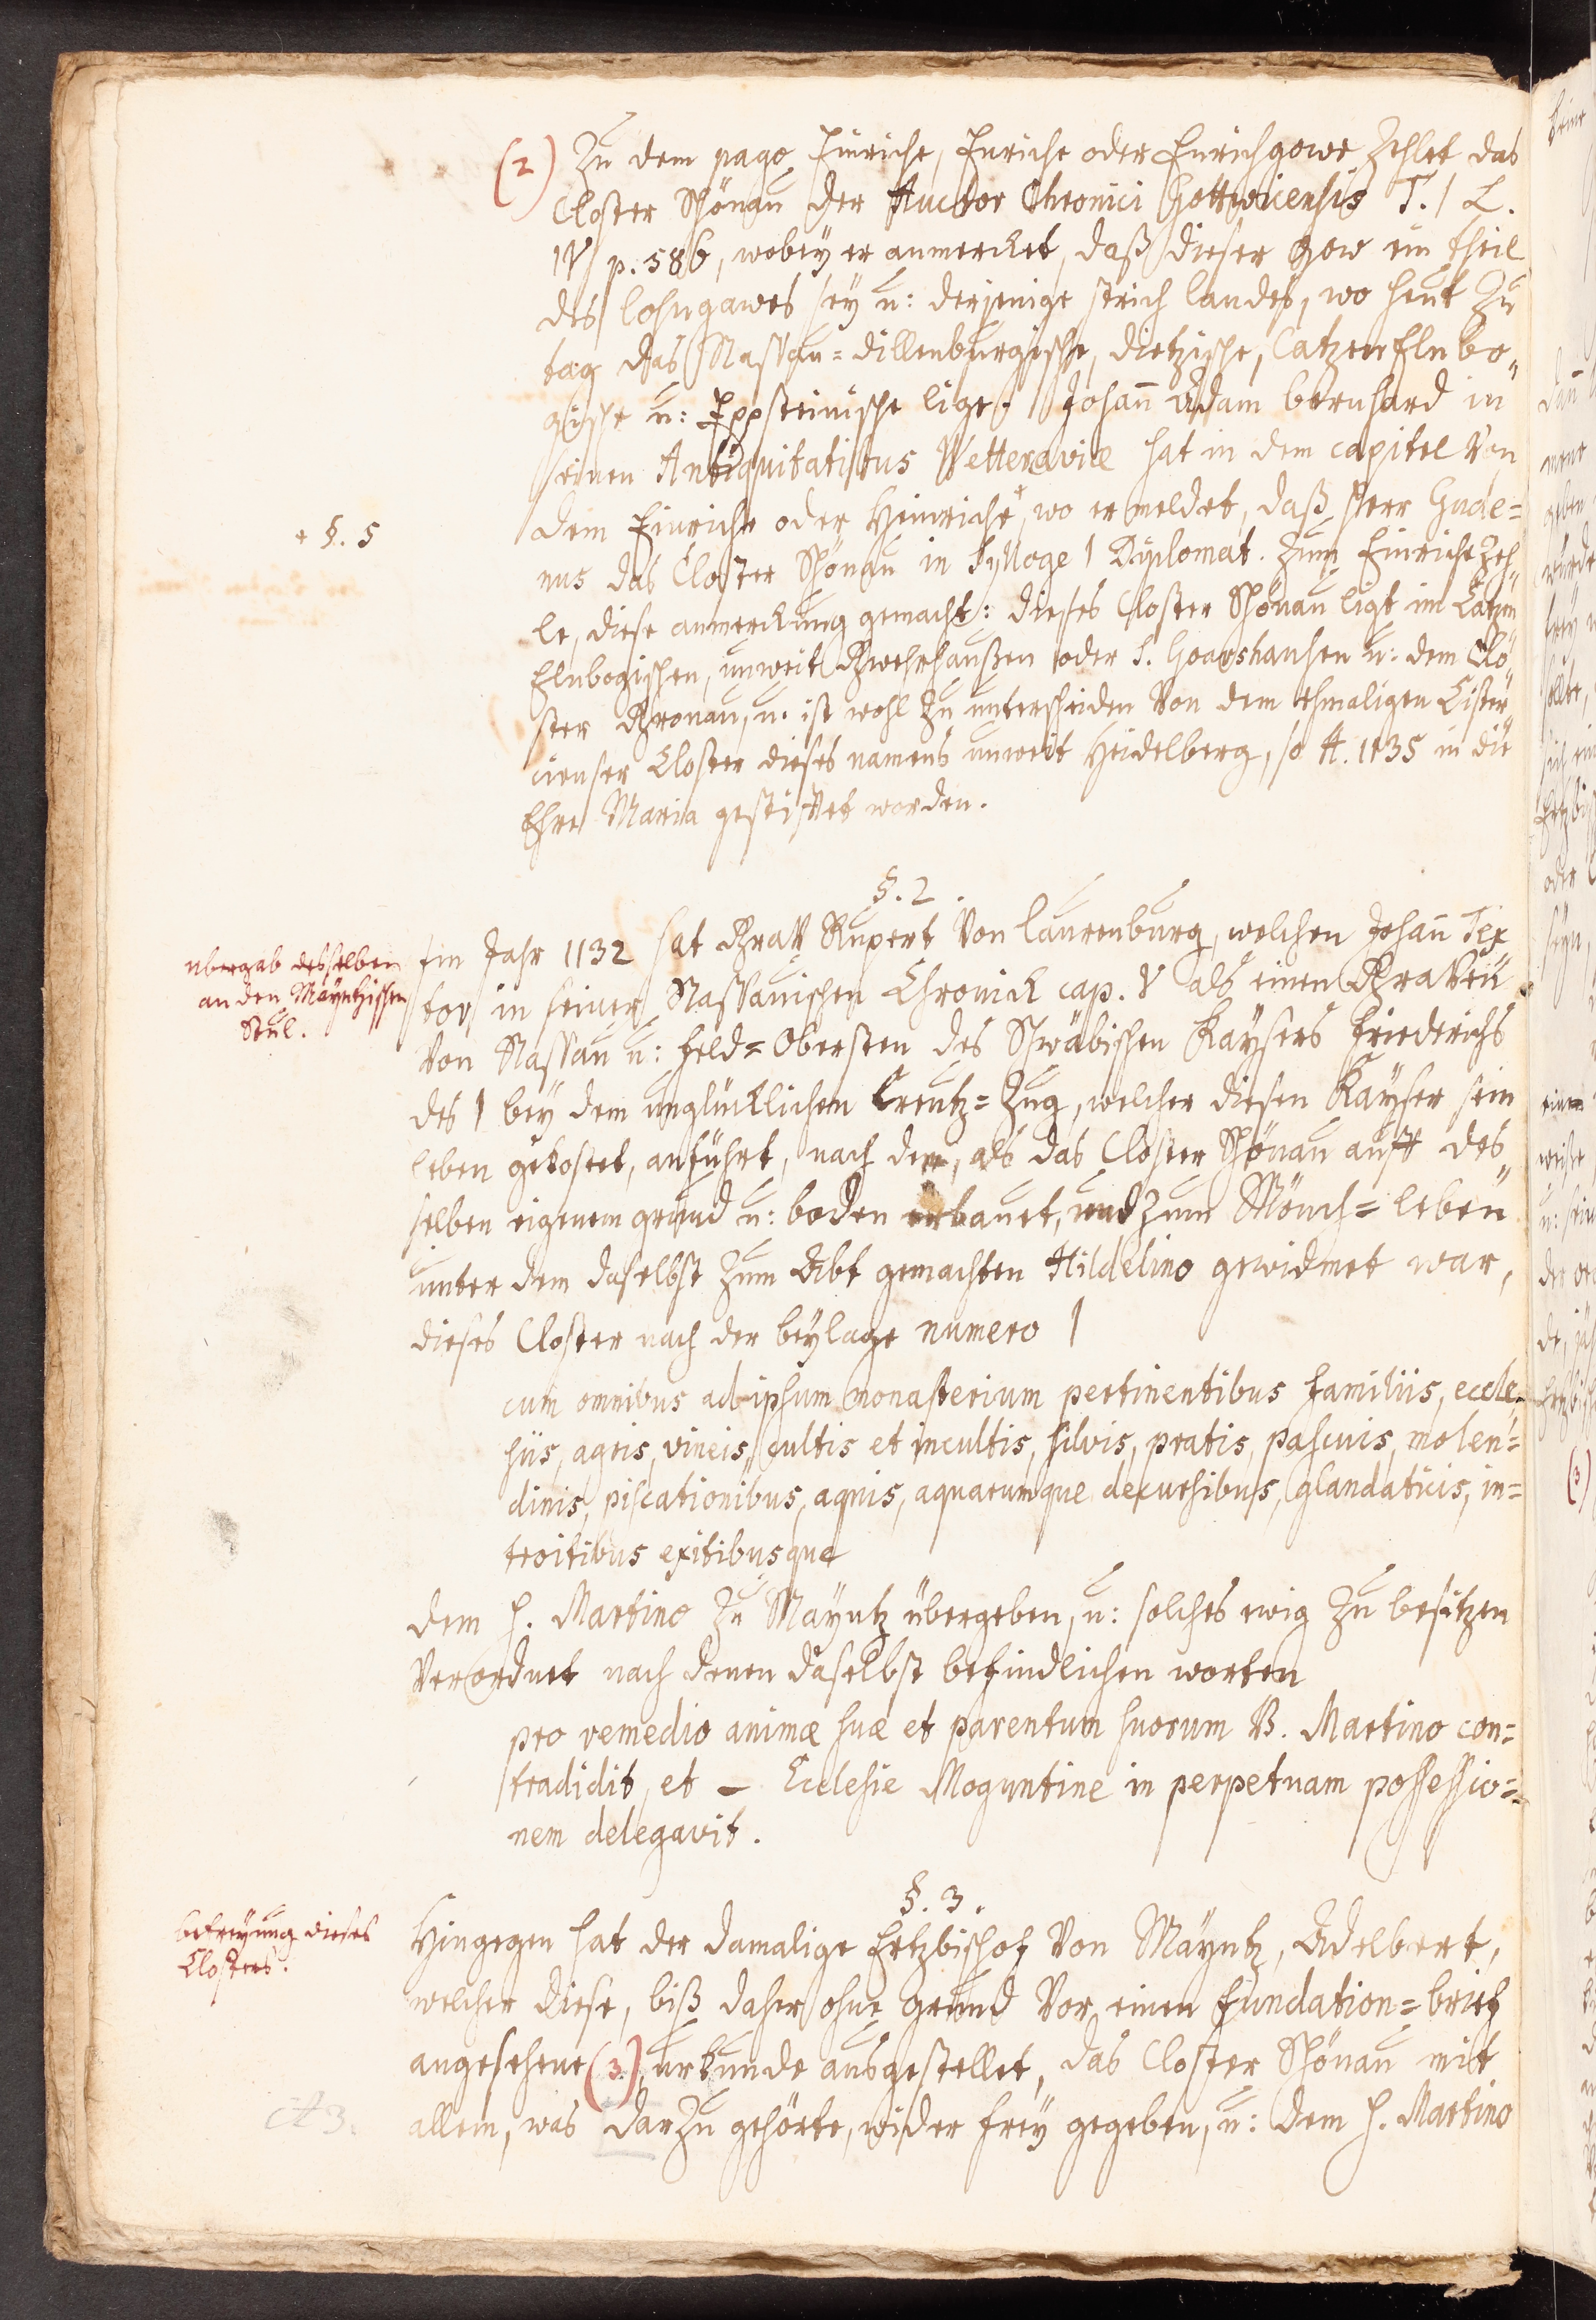 (2) Zu dem pago Einriche, Enriche oder Enrichgowe zehlet das
Closter Schönau der Auctor Chronici Gottwicensis T. I L.
IV p. 586, wobey er anmercket, daß dieser gow ein theil
des lohngawes sey u: derjenige strich landes, wo heut zu
tag das Nassau=dillenburgische, dietzische, CatzenElnbo„
gische u: Eppsteinische lige. Johann Adam bernhard in
seinen Antiquitatibus Wetteraviæ hat in dem capitel Von
dem Einriche oder Heinriche *, wo er meldet, daß Herr Gude=
* §. 5
nus das Closter Schönau in Sylloge I Diplomat. zum Einriche zeh„
le, diese anmerckung gemacht: dieses Closter Schönau ligt im Catzen
Elnbogischen, unweit Gwehrhaußen oder S. Goarshausen u: dem Clo„
ster Gronau, u. ist wohl zu unterscheiden Von dem ehmaligen Cister„
cienser Closter dieses namens unweit Heidelberg, so A. 1135 in die
Ehre Maria gestifftet worden.
§. 2.
ubergab desselben
an den Mayntzischen
Stul.
Im Jahr 1132 hat Graff Rupert Von Laurenburg, welchen Johann Tex
tor in seiner Nassauischen Chronick cap. V als einen Graven
Von Nassau u: feld=Obersten des Schwäbischen Kaysers Friederichs
des I bey dem unglücklichen Creutz=Zug, welcher diesen Kayser sein
leben gekostet, anführt, nach dem, als das Closter Schönau auff des„
selben eigenem grund u: boden erbauet, und zum Mönch=leben
unter dem daselbst zum Abt gemachten Hildelino gewidmet war,
dieses Closter nach der beylage numero I
cum omnibus ad ipsum monasterium pertinentibus familiis, eccle„
siis, agris, vineis, cultis et incultis, silvis, pratis, pascuis, molen=
dinis, piscationibus, aquis, aquarumque decursibus, glandaticis, in=
troitibus exitibusque
dem H. Martino zu Mayntz übergeben, u: solches ewig zu besitzen
Verordnet nach denen daselbst befindlichen worten
pro remedio animæ suæ et parentum suorum B. Martino con=
tradidit, et – Ecclesie Moguntine in perpetuam possessio=
nem delegavit.
§. 3.
befreyung dieses
Closters.
Hingegen hat der damalige Ertzbischof Von Mayntz, Adelbert,
welcher diese, biß daher ohne grund Vor einen fundation=brief
angesehene (3.) urkunde ausgestellet, das Closter Schönau mit
allem, was darzu gehörte, wider frey gegeben, u: dem H. Martino
A 3.